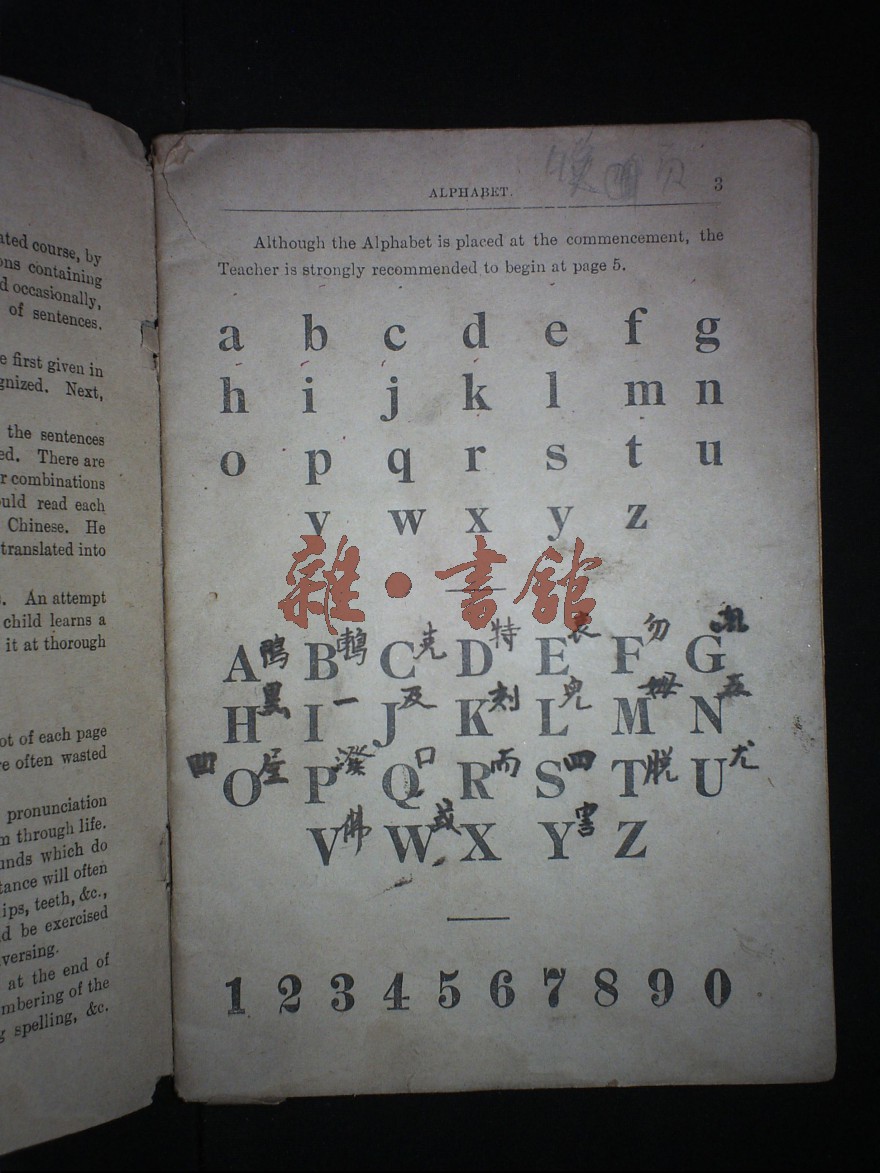 ated course, by
ons containing
d occasionally,
of sentences.
e first given in
gnized. Next,
the sentences
ed. There are
r combinations
ould read each
Chinese. He
translated into
s. An attempt
child learns a
it at thorough
ot of each page
re often wasted
pronunciation
m through life.
unds which do
tance will often
ips, teeth, &c.,
d be exercised
versing.
at the end of
mbering of the
g spelling, &c.
ALPHABET. 3
Although the Alphabet is placed at the commencement, the
Teacher is strongly recommended to begin at page 5.
a b c d e f g
h i j k l m n
o p q r s t u
v w x y z
雜·書館
A B C克 D特 E衣 F勿 G
H黑 I一 J及 K刻 L儿 M姆 N五
凹 O屋 P潑 Q口 R而 S四 T脱 U尤
V佛 W或 X Y害 Z
1 2 3 4 5 6 7 8 9 0